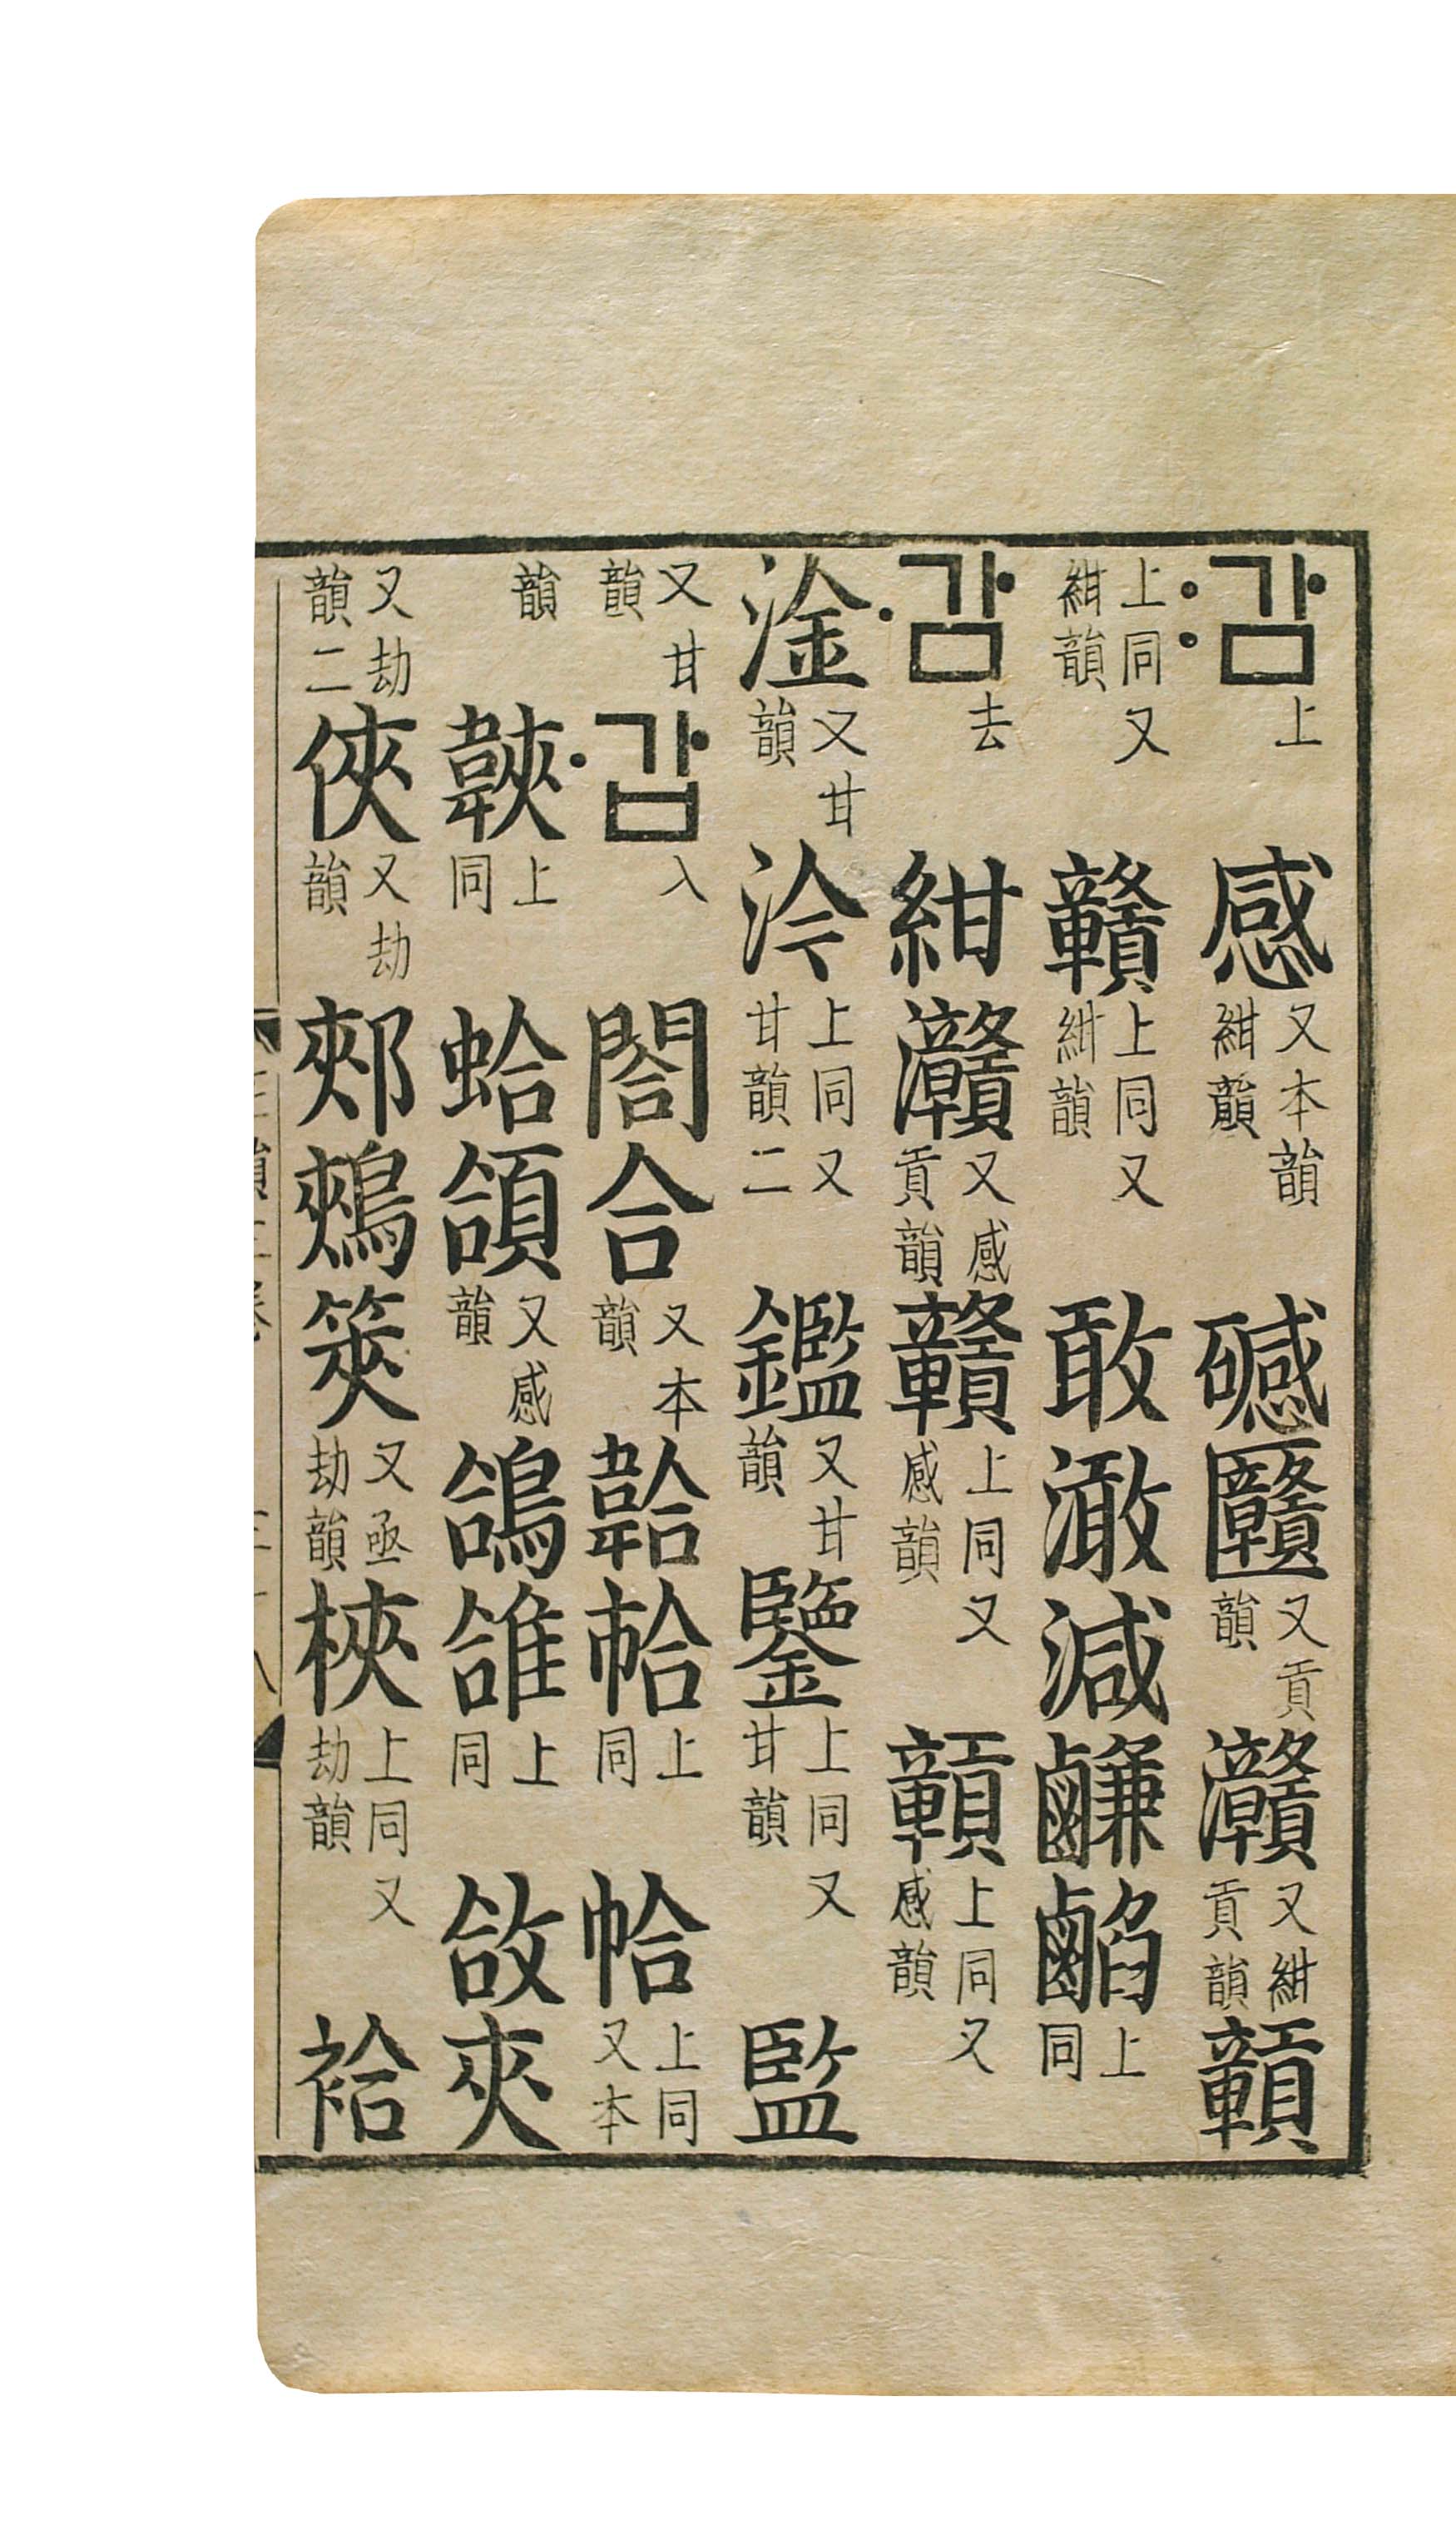 감上感又本韻紺韻䃭𪒠又貢韻灨又紺貢韻𩏩
上同又紺韻贛上同又紺韻敢澉減鹻䤘上同
감去紺灨又感貢韻贛上同又感韻𩏩上同又感韻
淦又甘韻汵上同又甘韻二鑑又甘韻鑒上同又甘韻監
又甘韻감入閤合又本韻韐帢上同帢上同又本
韻韎上同蛤頜又感韻鴿鵮上同敆夾
又劫韻二俠又劫韻郟鵊筴又亟劫韻梜上同又劫韻袷